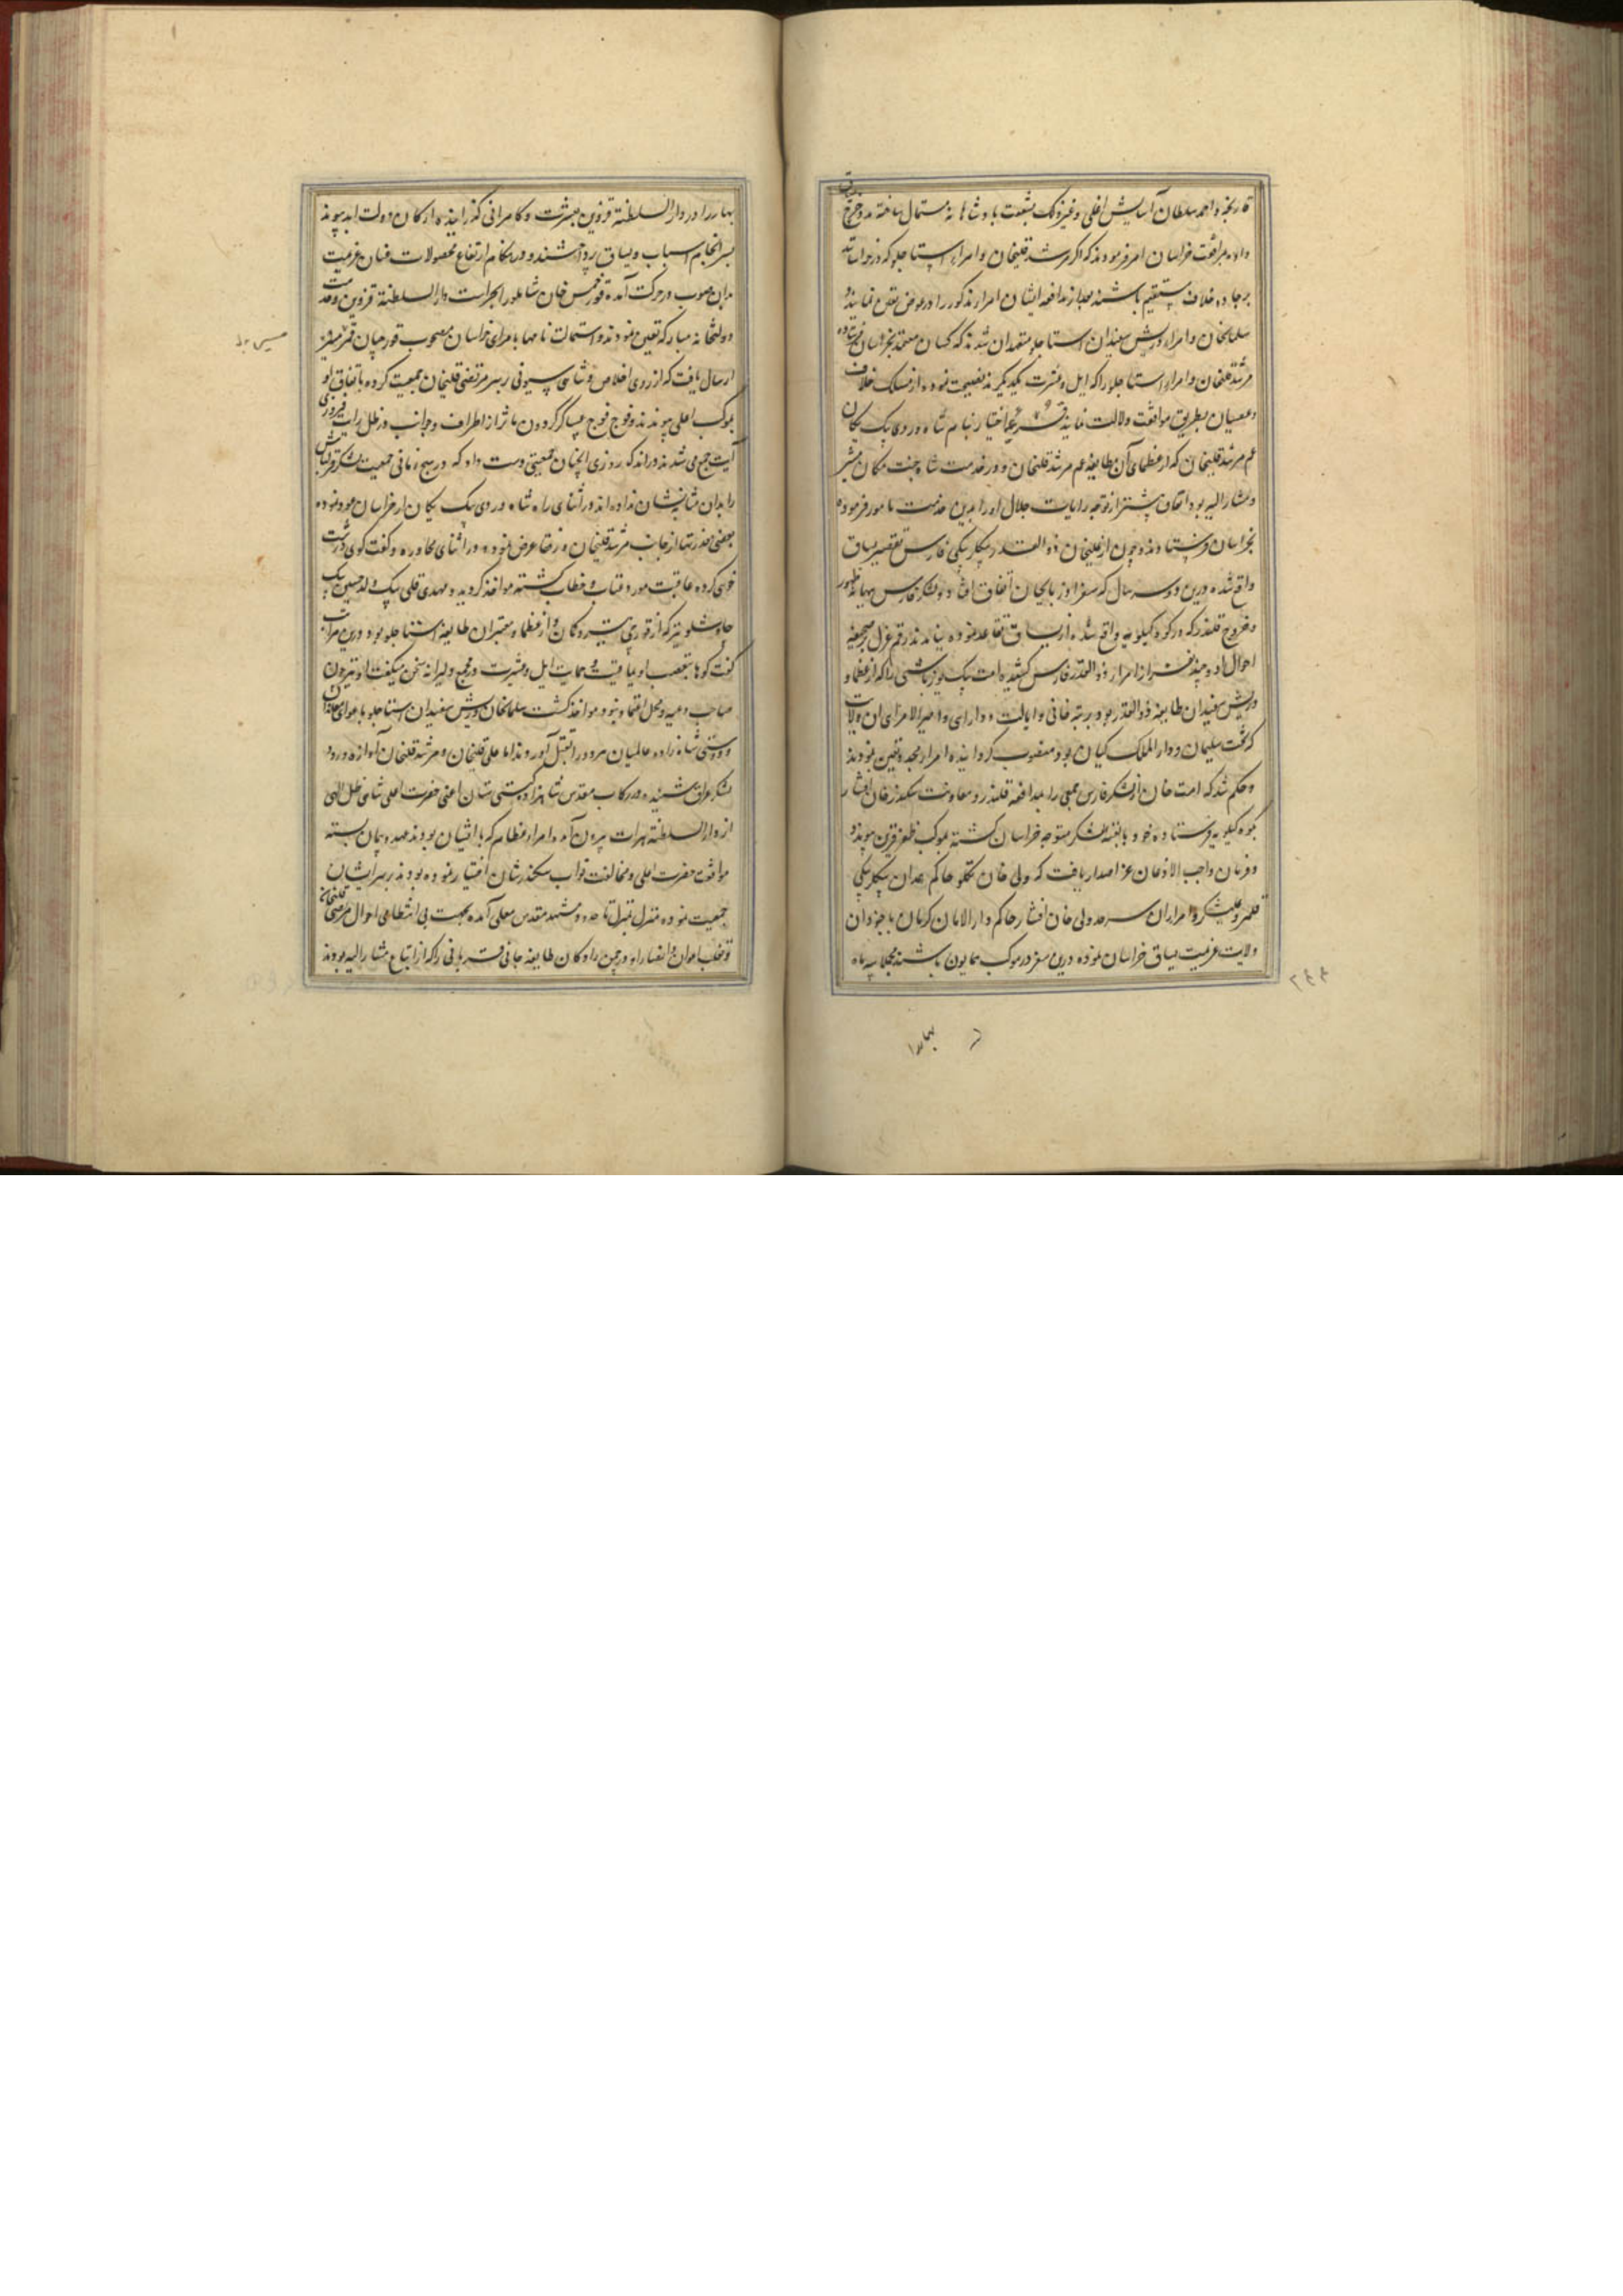 داده بمرافقت خراسان امر فرمودند که اگر مرشد قلیخان و امراء استاجلو که در خراسانند
بر جاده خلاف مستقیم باشند بعد از مدافعه ایشان امراء مذکور را در عوض تعیین نمایند
سلمانخان و امراء و ریش سفیدان استاجلو متعهدان شدند که کسان معتمد بخراسان فرستاده
مرشد قلیخان و امراء استاجلو را که ایل و عشرت یکدیگرند نصیحت نموده از مسلک خلاف
و عصیان بطریق موافقت دلالت نمایند اختیار بنام شاه وردی بیک یکان
عم مرشد قلیخان که از عظمای آن طایفه عم مرشد قلیخان و در خدمت شاه جنت مکان
و مشار الیه بود اتفاق پیشتر از توجه رایات جلال او را بدین خدمت مامور فرموده
بخراسان فرستادند و چون خان ذوالقدر بیکلربیکی فارس تقصیر یساق
واقع شده درین دو سه سال که سفر آذربایجان اتفاق افتاد و لشکر فارس ببهانه ظهور
و خروج قلندر که در کوه کیلویه واقع شده از یساق تقاعد نموده نیامدند رقم عزل بر صحیفه
احوال او و چند نفر از امراء ذوالقدر فارس کشیده امت بیک را که از عظما و
ریش سفیدان طایفه ذوالقدر بود برتبه خانی و ایالت و دارای و امیرالامرای آن ولایت
که تخت سلیمان و دار الملک کیان بود منصوب گردانیده امراء مجدد تعیین نمودند
و حکم شد که امت خان از لشکر فارس جمعی را بمدافعه قلندر و معاونت سکندر خان افشار
بکوه کیلویه فرستاده خود با بقیه لشکر متوجه خراسان گشته بموکب ظفر قرین پیوندد
و فرمان واجب الاذعان عز اصدار یافت که ولی خان تکلو حاکم همدان بیکلربیکی
قلمرو علیشکر و امراء آن سرحد ولی خان افشار حاکم دار الامان کرمان با جنود آن
ولایت عزیمت یساق خراسان نموده درین سفر در موکب همایون باشند مجملا سه ماه
۲۴۴
بهار را
بهار را در دار السلطنة قزوین بعشرت و کامرانی گذرانیده ارکان دولت ابد پیوند
بسرانجام اسباب و یساق پرداختند و در هنگام ارتفاع محصولات عنان عزیمت
بدان صوب در حرکت آمده قورخمس خان شاملو را بحراست دار السلطنة قزوین و خدمت
دولتخانه مبارکه تعیین نمودند و استمالت نامها بامرای خراسان مصحوب قورچیان
ارسال یافت که از روی اخلاص و شاهی سیونی بر سر مرتضی قلیخان جمعیت کرده باتفاق او
بموکب اعلی پیوندند و فوج فوج عساکر گردون مآثر از اطراف و جوانب در ظل رایت فیروزی
آیت جمع می شدند در اندک روزی آنچنان جمعیتی دست داد که در هیچ زمانی جمعیت لشکر قزلباش
را بدان مثابه نشان نداده اند در اثنای راه شاه وردی بیک یکان از خراسان عود نموده
بعضی معذرتها از جانب مرشد قلیخان و رفقا عرض نمود و در اثنای محاوره و گفت گوی درشت
خوی کرده عاقبت مورد عتاب و خطاب گشته مواخذ گردید و مهدی قلی بیک ولد حسین بیک
چاوشلو نیز که از قوری تیر و کمان و از عظما و معتبران طایفه استاجلو بود درین مراتب
گفت گوها بتعصب اویماقیت و حمایت ایل و عشیرت در مجمع دلیرانه سخن میگفت
صاحب داعیه و محل اعتماد نبود مواخذ گشت سلمانخان و ریش سفیدان استاجلو با هوای
و دوستی شاه زاده عالمیان هر دو را بقتل آوردند اما علی قلیخان و مرشد قلیخان آوازه ورود
لشکر عراق شنیده در رکاب مقدس شاهزاده گیتی ستان اعنی حضرت اعلی شاهی ظل الهی
از دار السلطنة هرات بیرون آمده امراء عظام که با ایشان بودند عهد و پیمان بسته
موافقت حضرت اعلی و مخالفت نواب سکندر شان اختیار نموده بودند بر سر ایشان
جمعیت نموده منزل بمنزل تا حدود مشهد مقدس معلی آمده بجهت بی انتظامی احوال مرتضی قلیخان